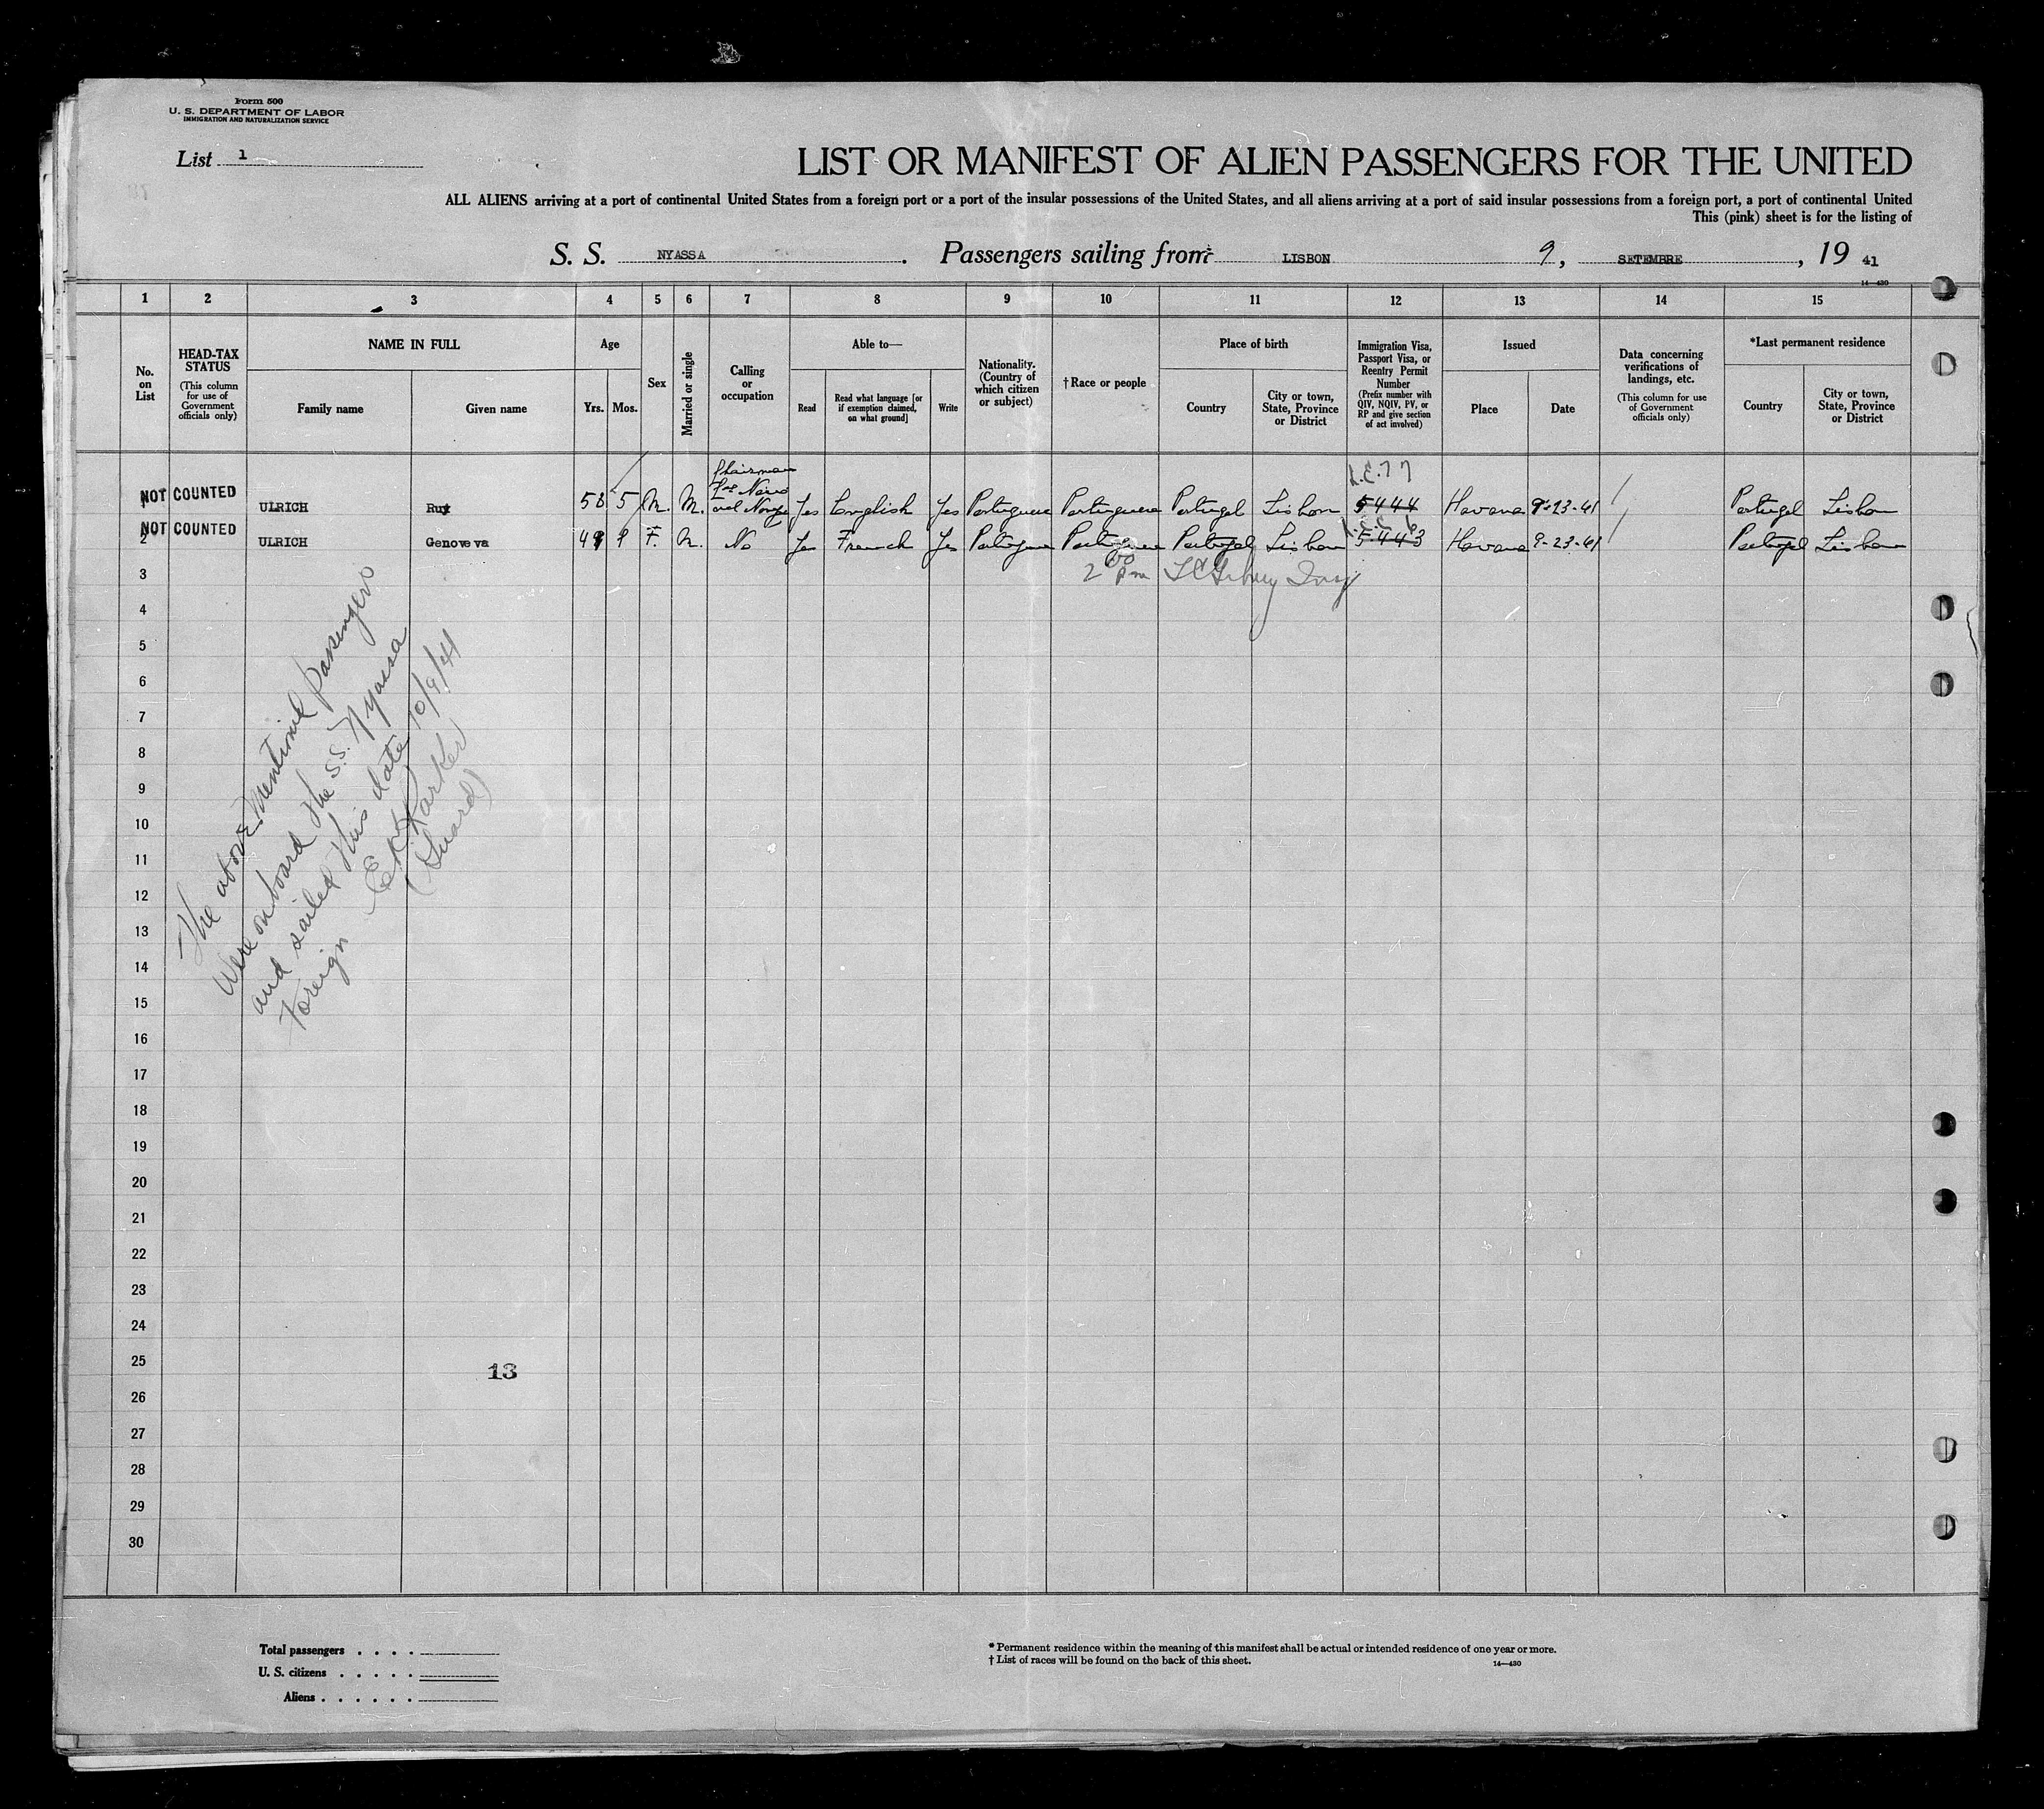 Form 500
U. S. DEPARTMENT OF LABOR
IMMIGRATION AND NATURALIZATION SERVICE
List 1
LIST OR MANIFEST OF ALIEN PASSENGERS FOR THE UNITED
ALL ALIENS arriving at a port of continental United States from a foreign port or a port of the insular possessions of the United States, and all aliens arriving at a port of said insular possessions from a foreign port, a port of continental United
This (pink) sheet is for the listing of
S. S. NYASSA. Passengers sailing from LISBON 9, SETEMBRE, 19 41
14—430
1 2 3 4 5 6 7 8 9 10 11 12 13 14 15
No. on List
HEAD-TAX STATUS
(This column for use of Government officials only)
NAME IN FULL
Family name Given name
Age
Yrs. Mos.
Sex
Married or single
Calling or occupation
Able to—
Read
Read what language [or if exemption claimed, on what ground]
Write
Nationality. (Country of which citizen or subject)
†Race or people
Place of birth
Country
City or town, State, Province or District
Immigration Visa, Passport Visa, or Reentry Permit Number
(Prefix number with QIV, NQIV, PV, or RP and give section of act involved)
Issued
Place Date
Data concerning verifications of landings, etc.
(This column for use of Government officials only)
*Last permanent residence
Country
City or town, State, Province or District
Chairman
1 NOT COUNTED ULRICH Ruy 58 5 M. M. Yes English Yes Portuguese Portuguese Portugal Lisbon 5444 Havana 9-23-41 Portugal Lisbon
2 NOT COUNTED ULRICH Genoveva 49 9 F. M. No Yes French Yes Portuguese Portuguese Portugal Lisbon 5443 Havana 9-23-41 Portugal Lisbon
3 2 00 pm
4
5
6
7
8
9
10
11
12
13
14
15
16
17
18
19
20
21
22
23
24
25
26
27
28
29
30
The above Mentioned passengers
Were on board the S.S. Nyassa
and sailed this date 10/9/41
Foreign
Parker
(Guard)
13
Total passengers . . . .
U. S. citizens . . . . .
Aliens . . . . . .
* Permanent residence within the meaning of this manifest shall be actual or intended residence of one year or more.
† List of races will be found on the back of this sheet.
14—430